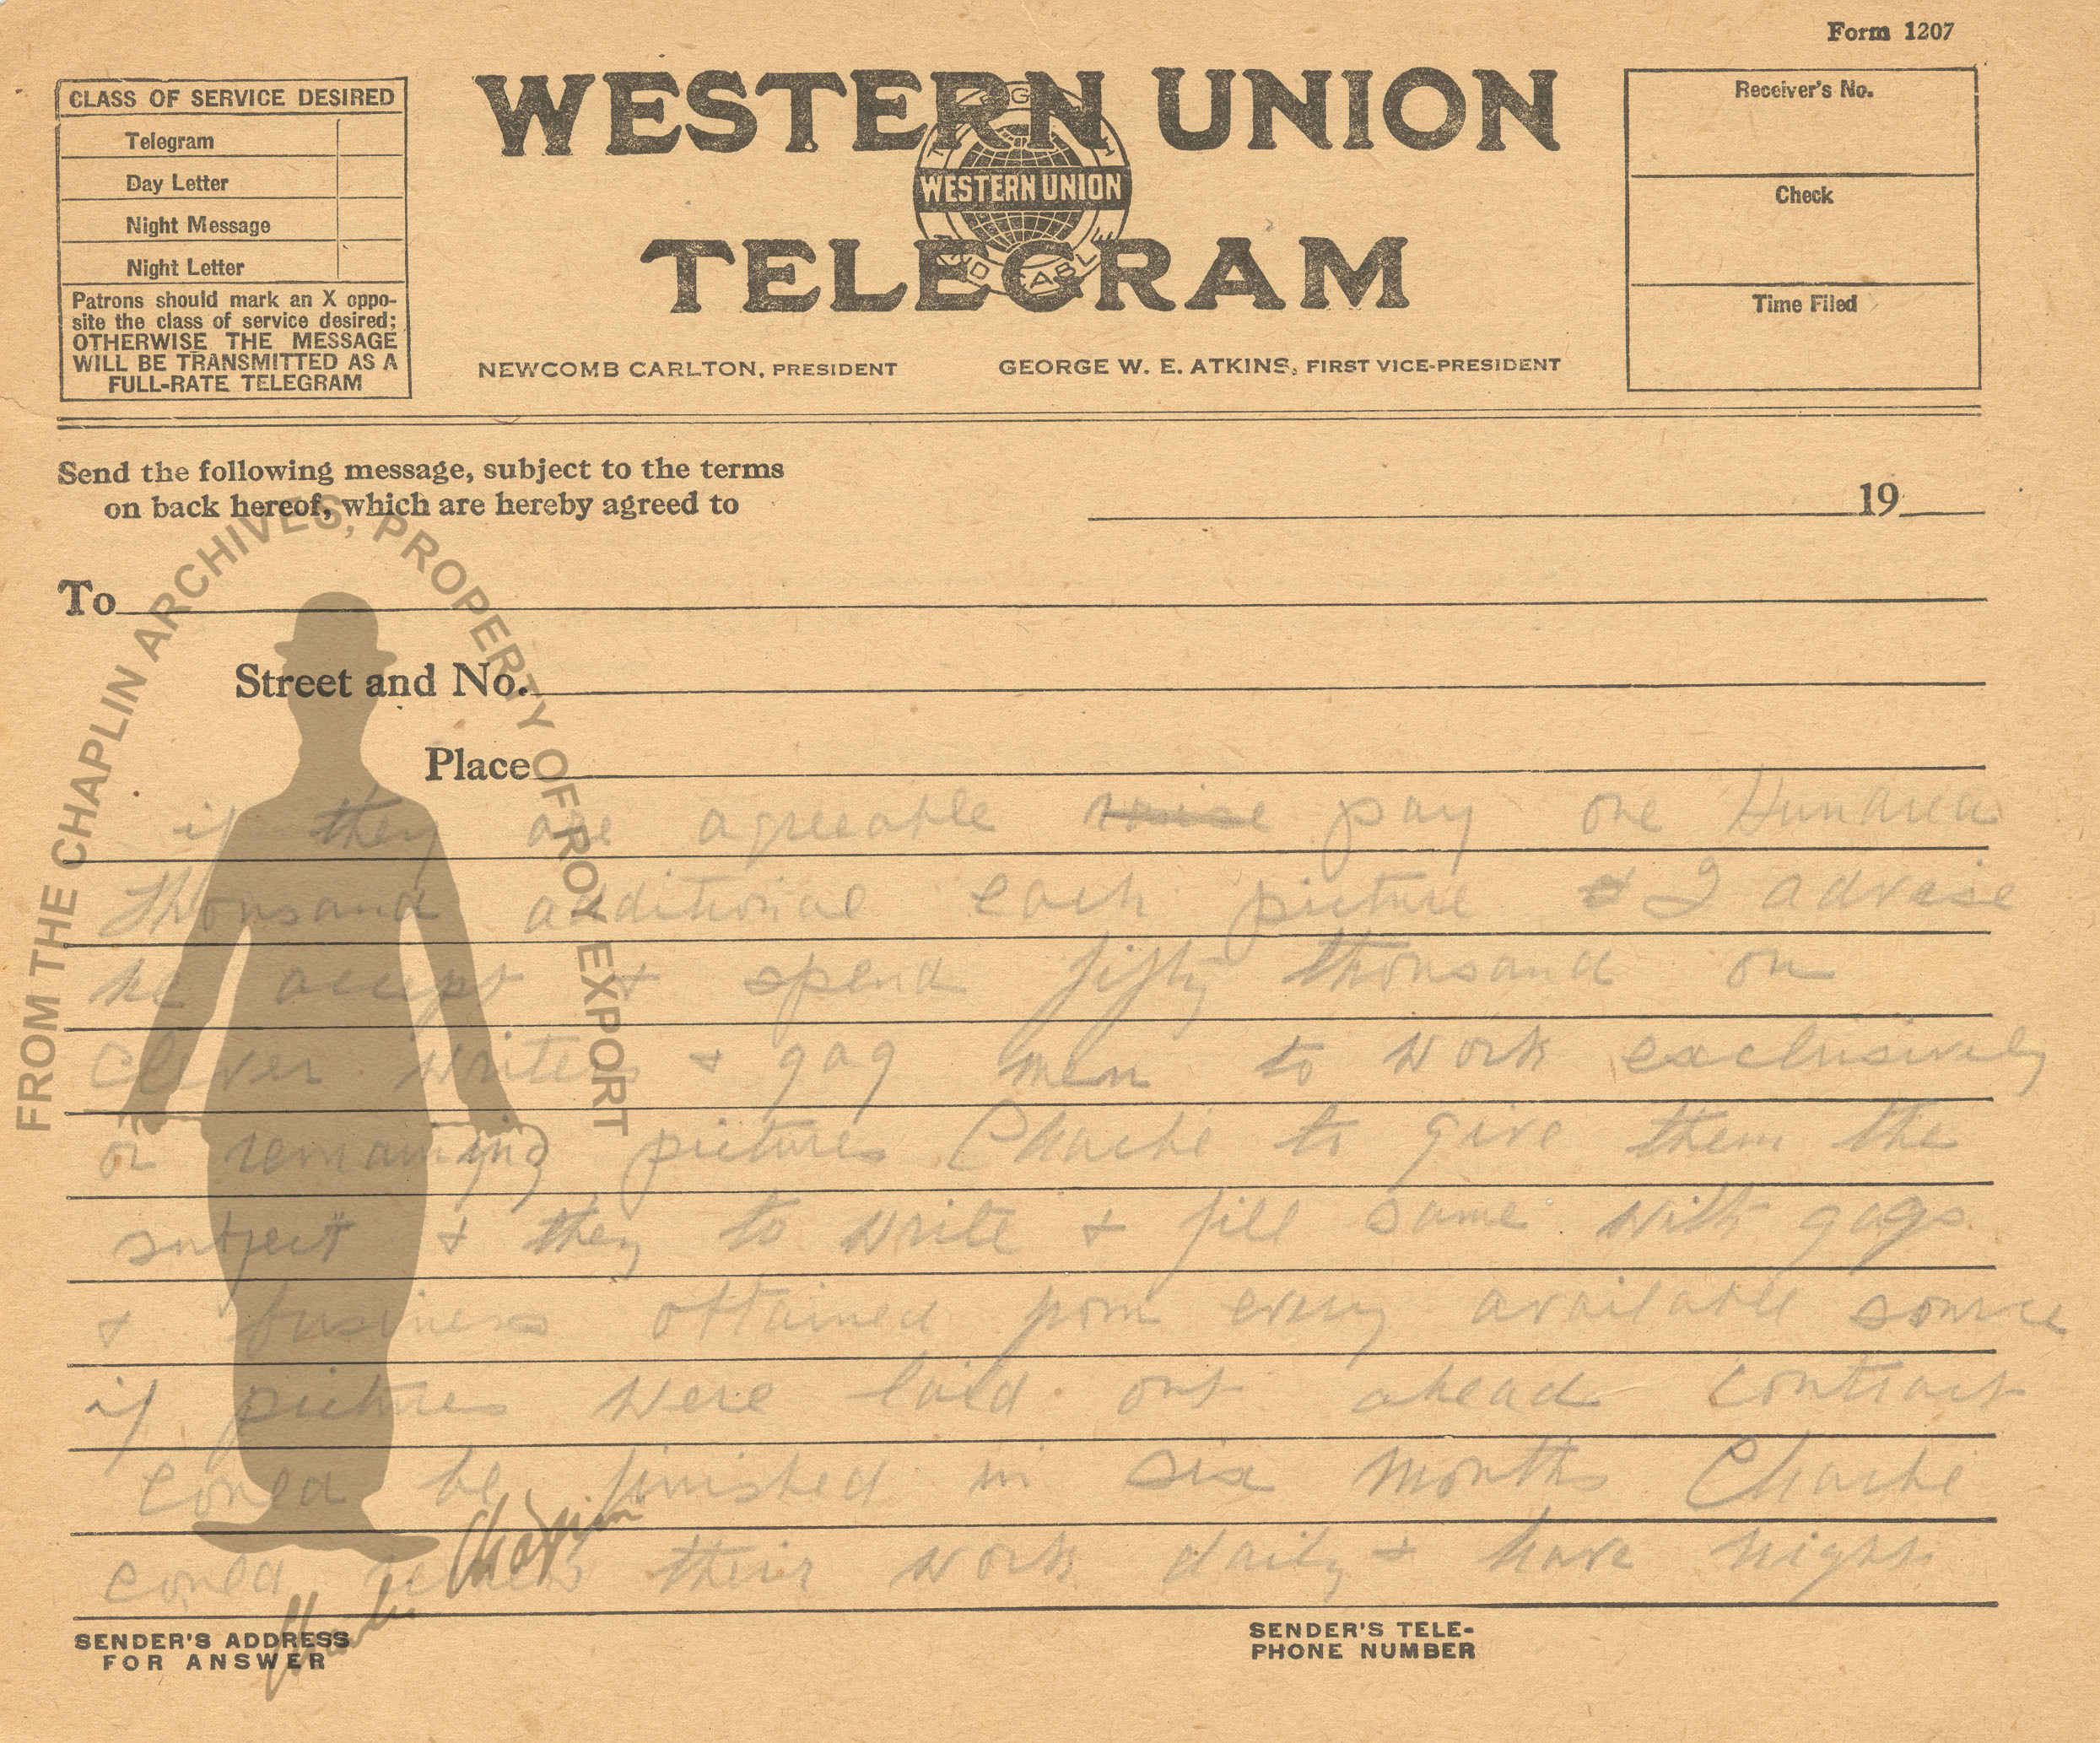 Form 1207
CLASS OF SERVICE DESIRED
Telegram
Day Letter
Night Message
Night Letter
Patrons should mark an X oppo-
site the class of service desired;
OTHERWISE THE MESSAGE
WILL BE TRANSMITTED AS A
FULL-RATE TELEGRAM
WESTERN UNION
WESTERN UNION
TELEGRAM
NEWCOMB CARLTON, PRESIDENT
GEORGE W. E. ATKINS, FIRST VICE-PRESIDENT
Receiver's No.
Check
Time Filed
Send the following message, subject to the terms
on back hereof, which are hereby agreed to
19
To
Street and No.
Place
if they are agreeable raise pay one Hundred
thousand additional each picture & I advise
he accept & spend fifty thousand on
clever writers & gag men to work exclusively
on remaining pictures Charlie to give them the
subject & they to write & fill same with gags
& business obtained from every available source
if pictures were laid out ahead contract
could be finished in six months Charlie
could review their work daily & have night
SENDER'S ADDRESS
FOR ANSWER
SENDER'S TELE-
PHONE NUMBER
FROM THE CHAPLIN ARCHIVES, PROPERTY OF ROY EXPORT
Charlie Chaplin